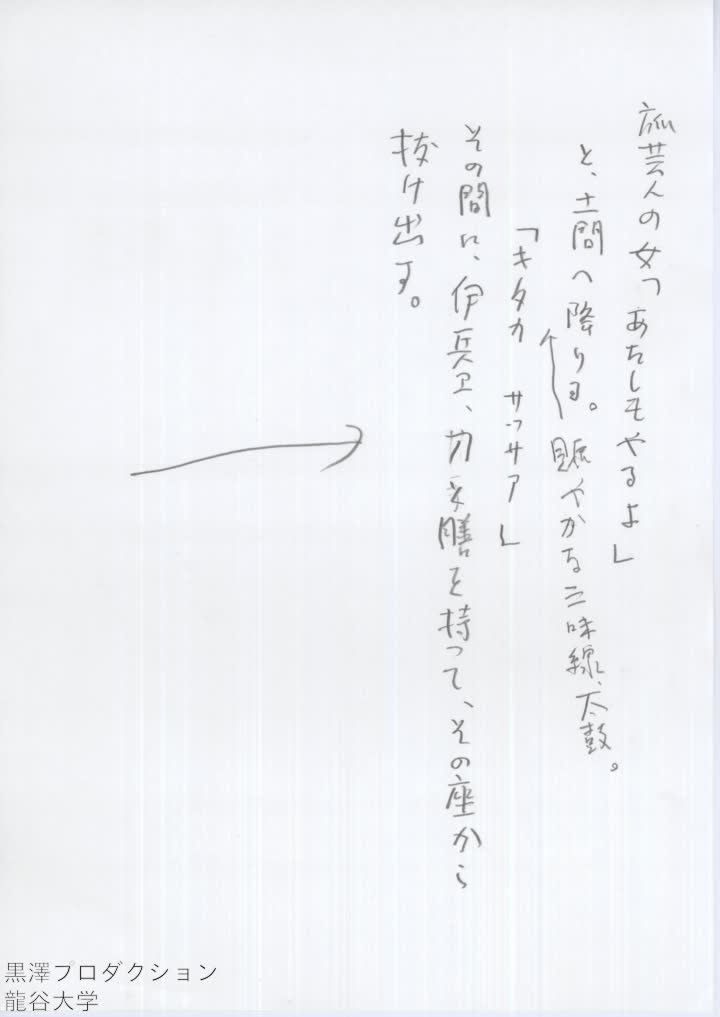 旅芸人の女「あたしもやるよ」
と、土間へ降りる。賑やかな三味線、太鼓。
「キタカ サッサア」
その間に、伊兵卫、お膳を持って、その座から
抜け出す。
黒澤プロダクション
龍谷大学